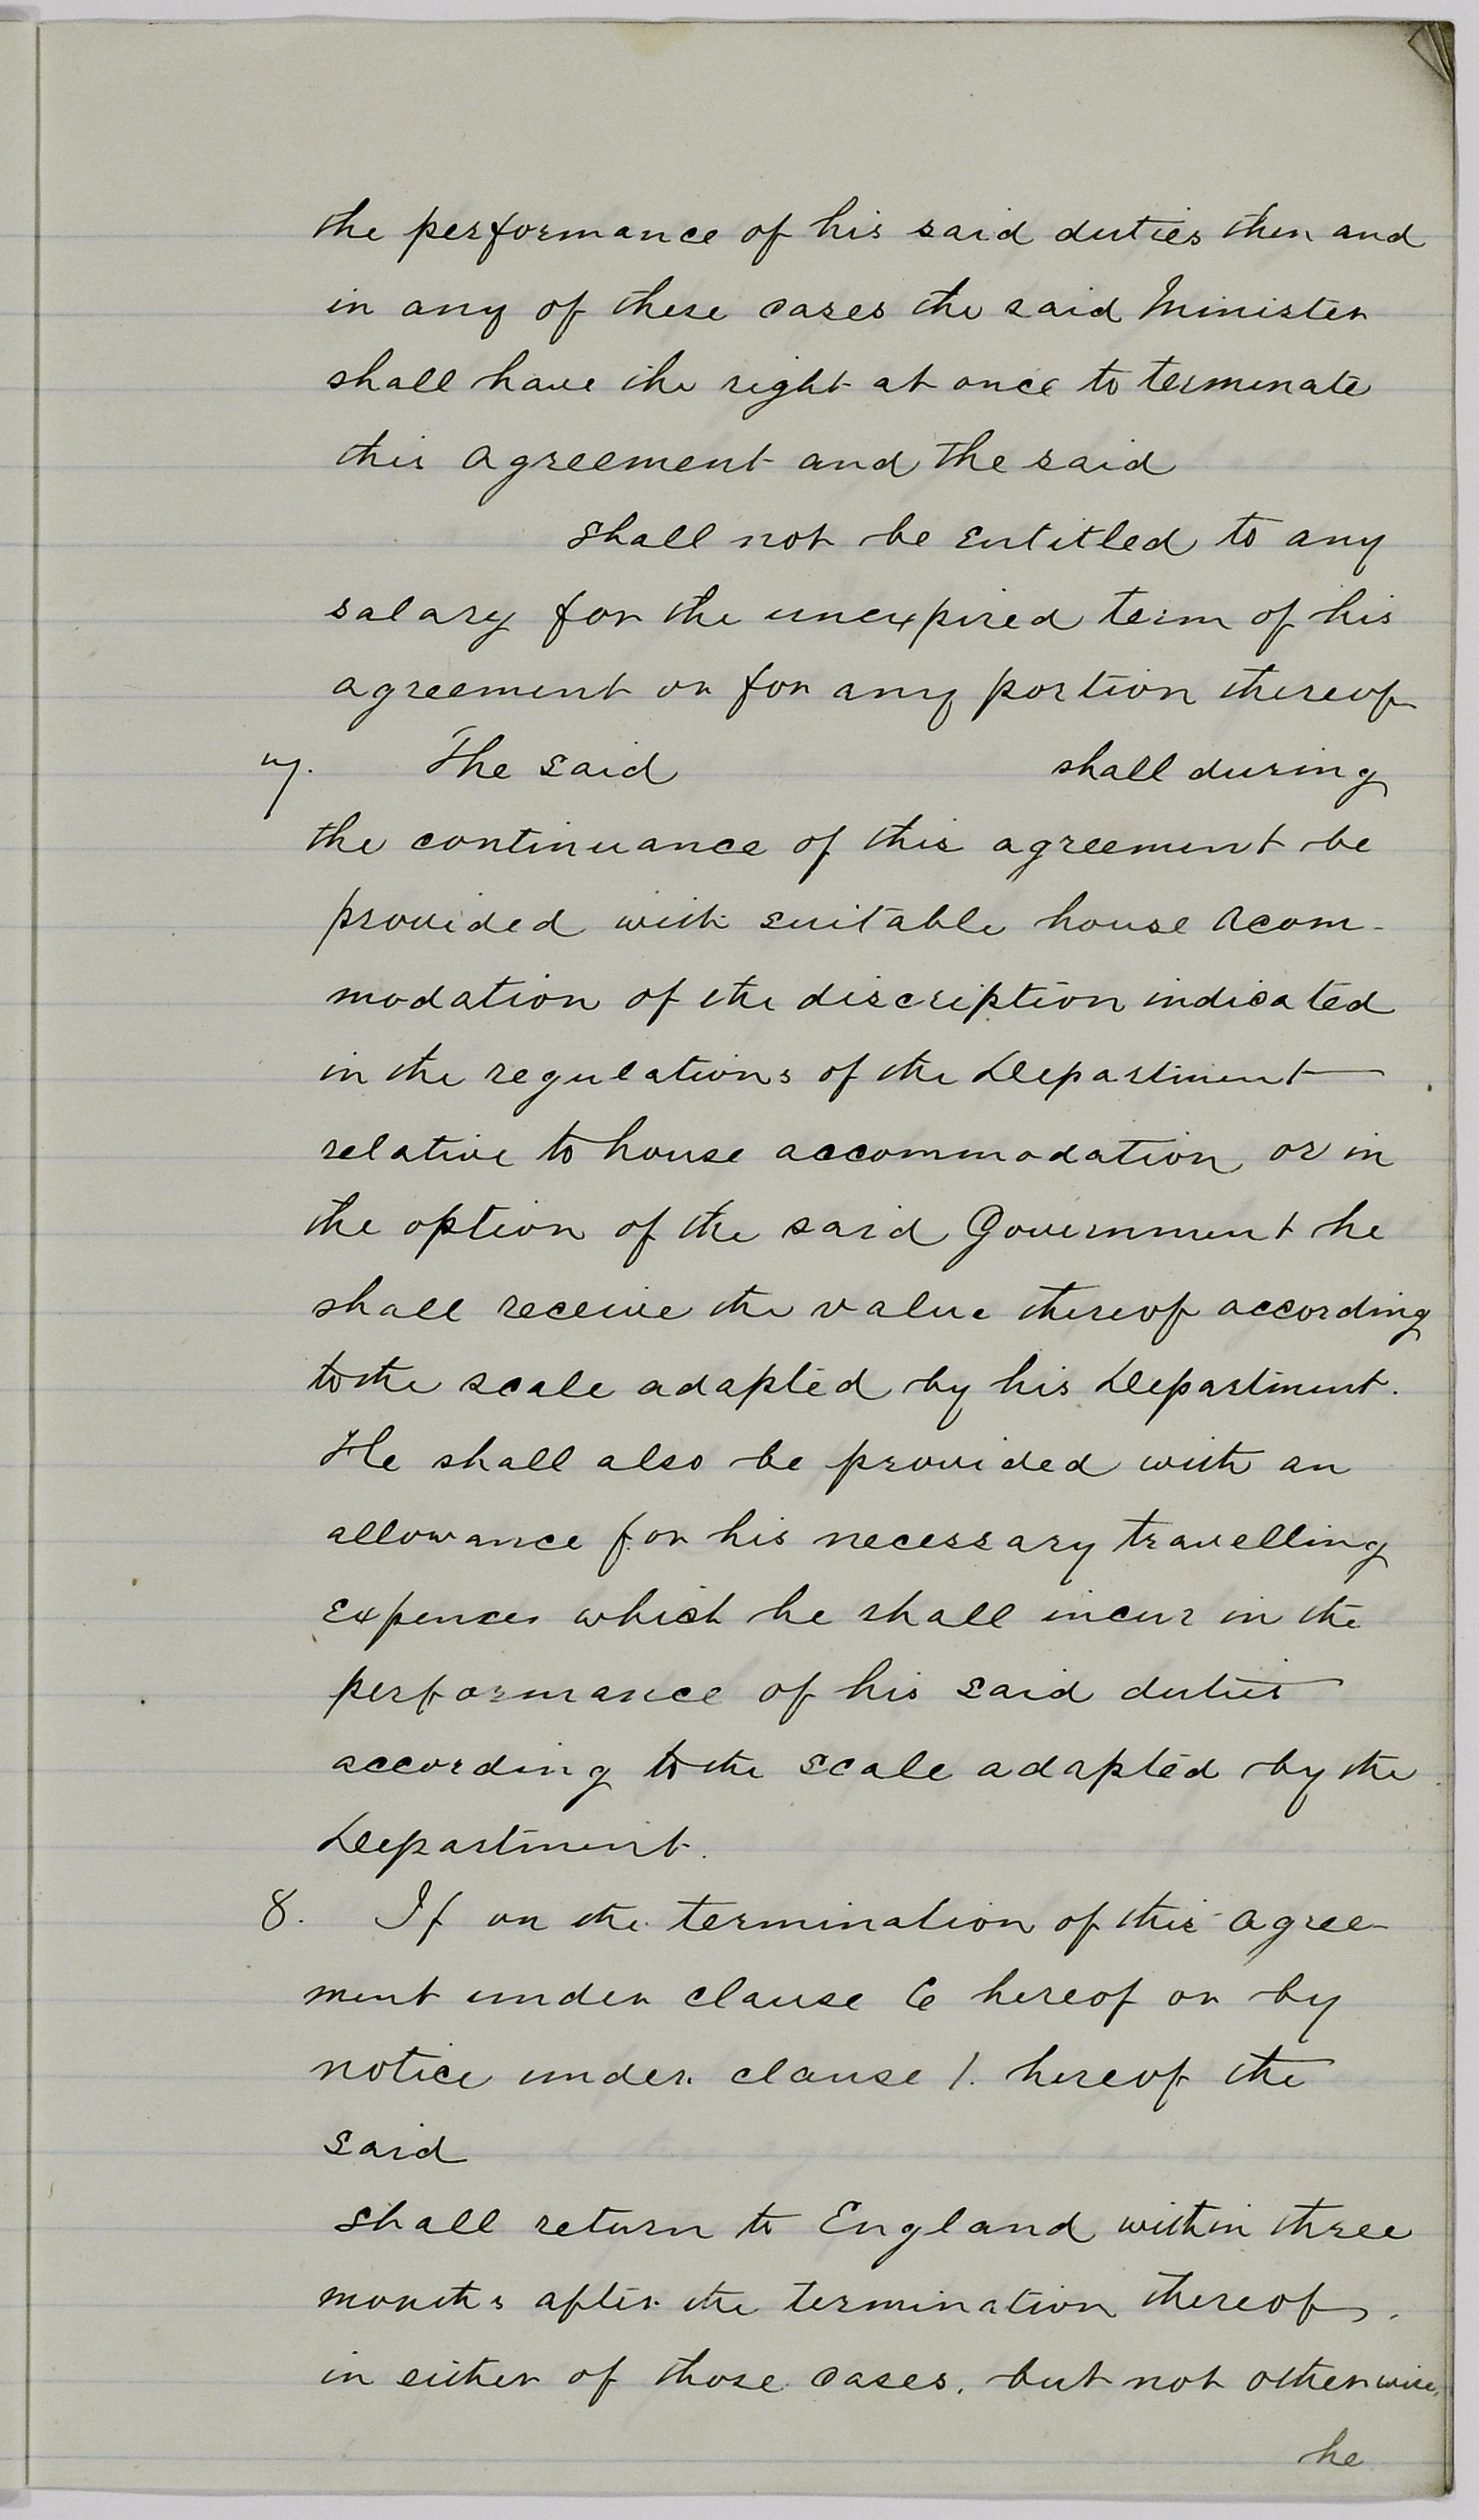 the performance of his said duties then and
in any of these cases the said Minister
shall have the right at once to terminate
this agreement and the said
shall not be entitled to any
salary for the unexpired term of his
agreement or for any portion thereof
7. The said shall during
the continuance of this agreement be
provided with suitable house acom-
modation of the discription indicated
in the regulations of the Department
relative to house accommodation or in
the option of the said Government he
shall receive the value thereof according
to the scale adapted by his Department.
He shall also be provided with an
allowance for his necessary travelling
expenses which he shall incur in the
performance of his said duties
according to the scale adapted by the
Department.
8. If on the termination of this agree-
ment under clause 6 hereof or by
notice under clause 1. hereof the
said
shall return to England within three
months after the termination thereof,
in either of those cases, but not otherwise,
he